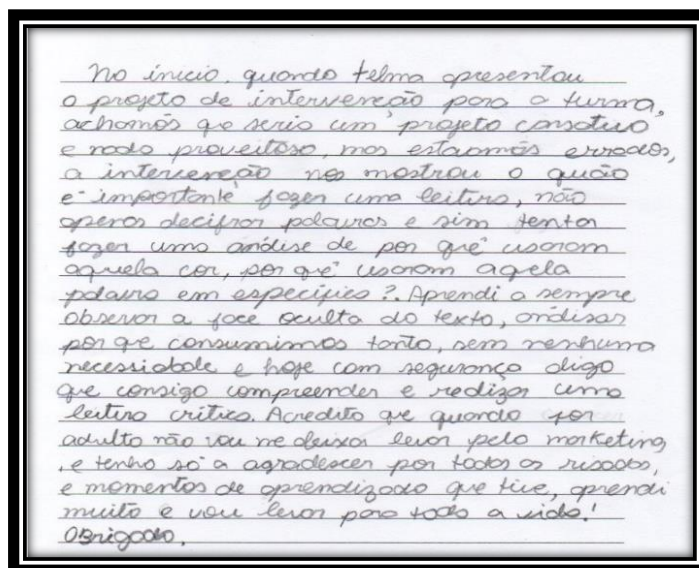 No inicio, quando telma apresentou
o projeto de intervenção para a turma,
achamos que seria um projeto cansativo
e nada proveitoso, mas estavamos errados,
a intervenção nos mostrou o quão
e importante fazer uma leitura, não
apenas decifrar palavras e sim tentar
fazer uma análise de por quê usaram
aquela cor, por quê usaram aquela
palavra em específico?. Aprendi a sempre
observar a face oculta do texto, análisar
por que consumimos tanto, sem nenhuma
necessidade e hoje com segurança digo
que consigo compreender e realizar uma
leitura crítica. Acredito que quando for
adulto não vou me deixar levar pelo marketing
,e tenho só a agradescer por todas as risadas,
e momentos de aprendizado que tive, aprendi
muito e vou levar para toda a vida!
Obrigado.